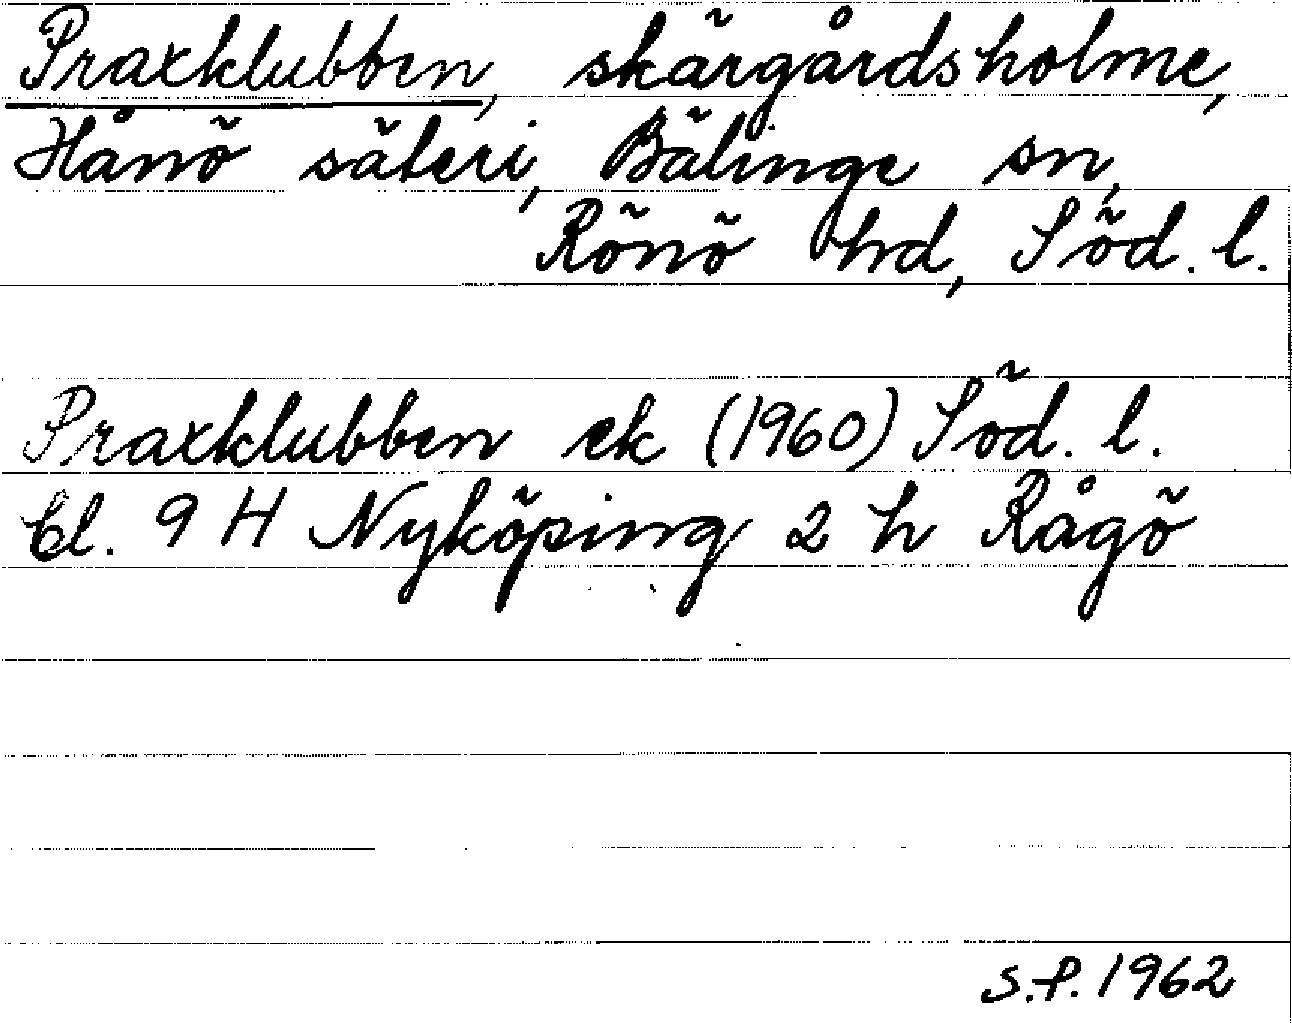 Praxklubben, skärgårdsholme,
Hånö säteri, Bälinge sn,
Rönö hd, Söd. l.
Praxklubben ek (1960) Söd. l.
Bl. 9 H Nyköping 2 h Rågö
S.P. 1962